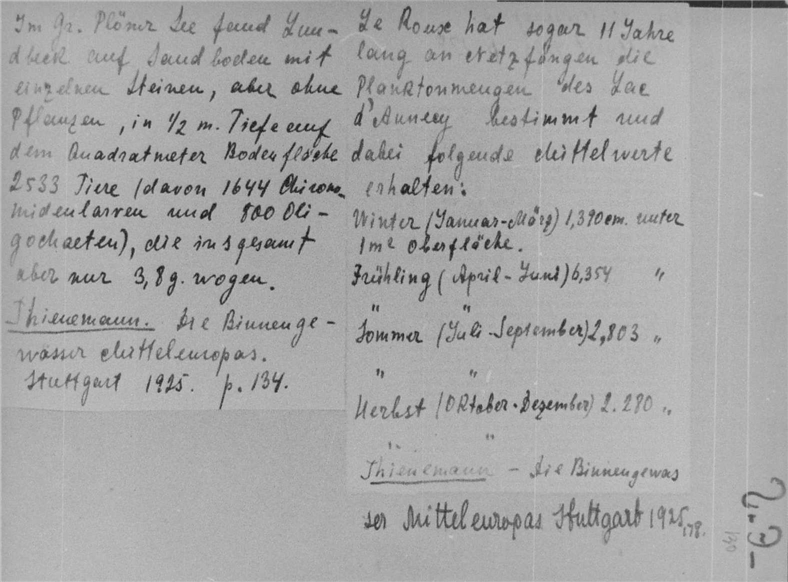 Im Gr. Plöner See fand Lun-
dbeck auf Sandboden mit
einzelnen Steinen, aber ohne
Pflanzen, in 1/2 m. Tiefe auf
dem Quadratmeter Bodenfläche
2533 Tiere (davon 1644 Chirono-
midenlarven und 800 Oli-
gochaeten), die insgesamt
aber nur 3,8 g. wogen.
Thienemann. Die Binnenge-
wässer Mitteleuropas.
Stuttgart 1925. p. 134.
Le Roux hat sogar 11 Jahre
lang an Netzfängen die
Planktonmengen des Lac
d'Annecy bestimmt und
dabei folgende Mittelwerte
erhalten:
Winter (Januar-März) 1,390 cm. unter
1 m² Oberfläche.
Frühling (April-Juni) 6,354 "
"
Sommer (Juli-September) 2,803 "
" "
Herbst (Oktober-Dezember) 2.280 "
" "
Thienemann - Die Binnengewas
ser Mitteleuropas Stuttgart 1925, 178.